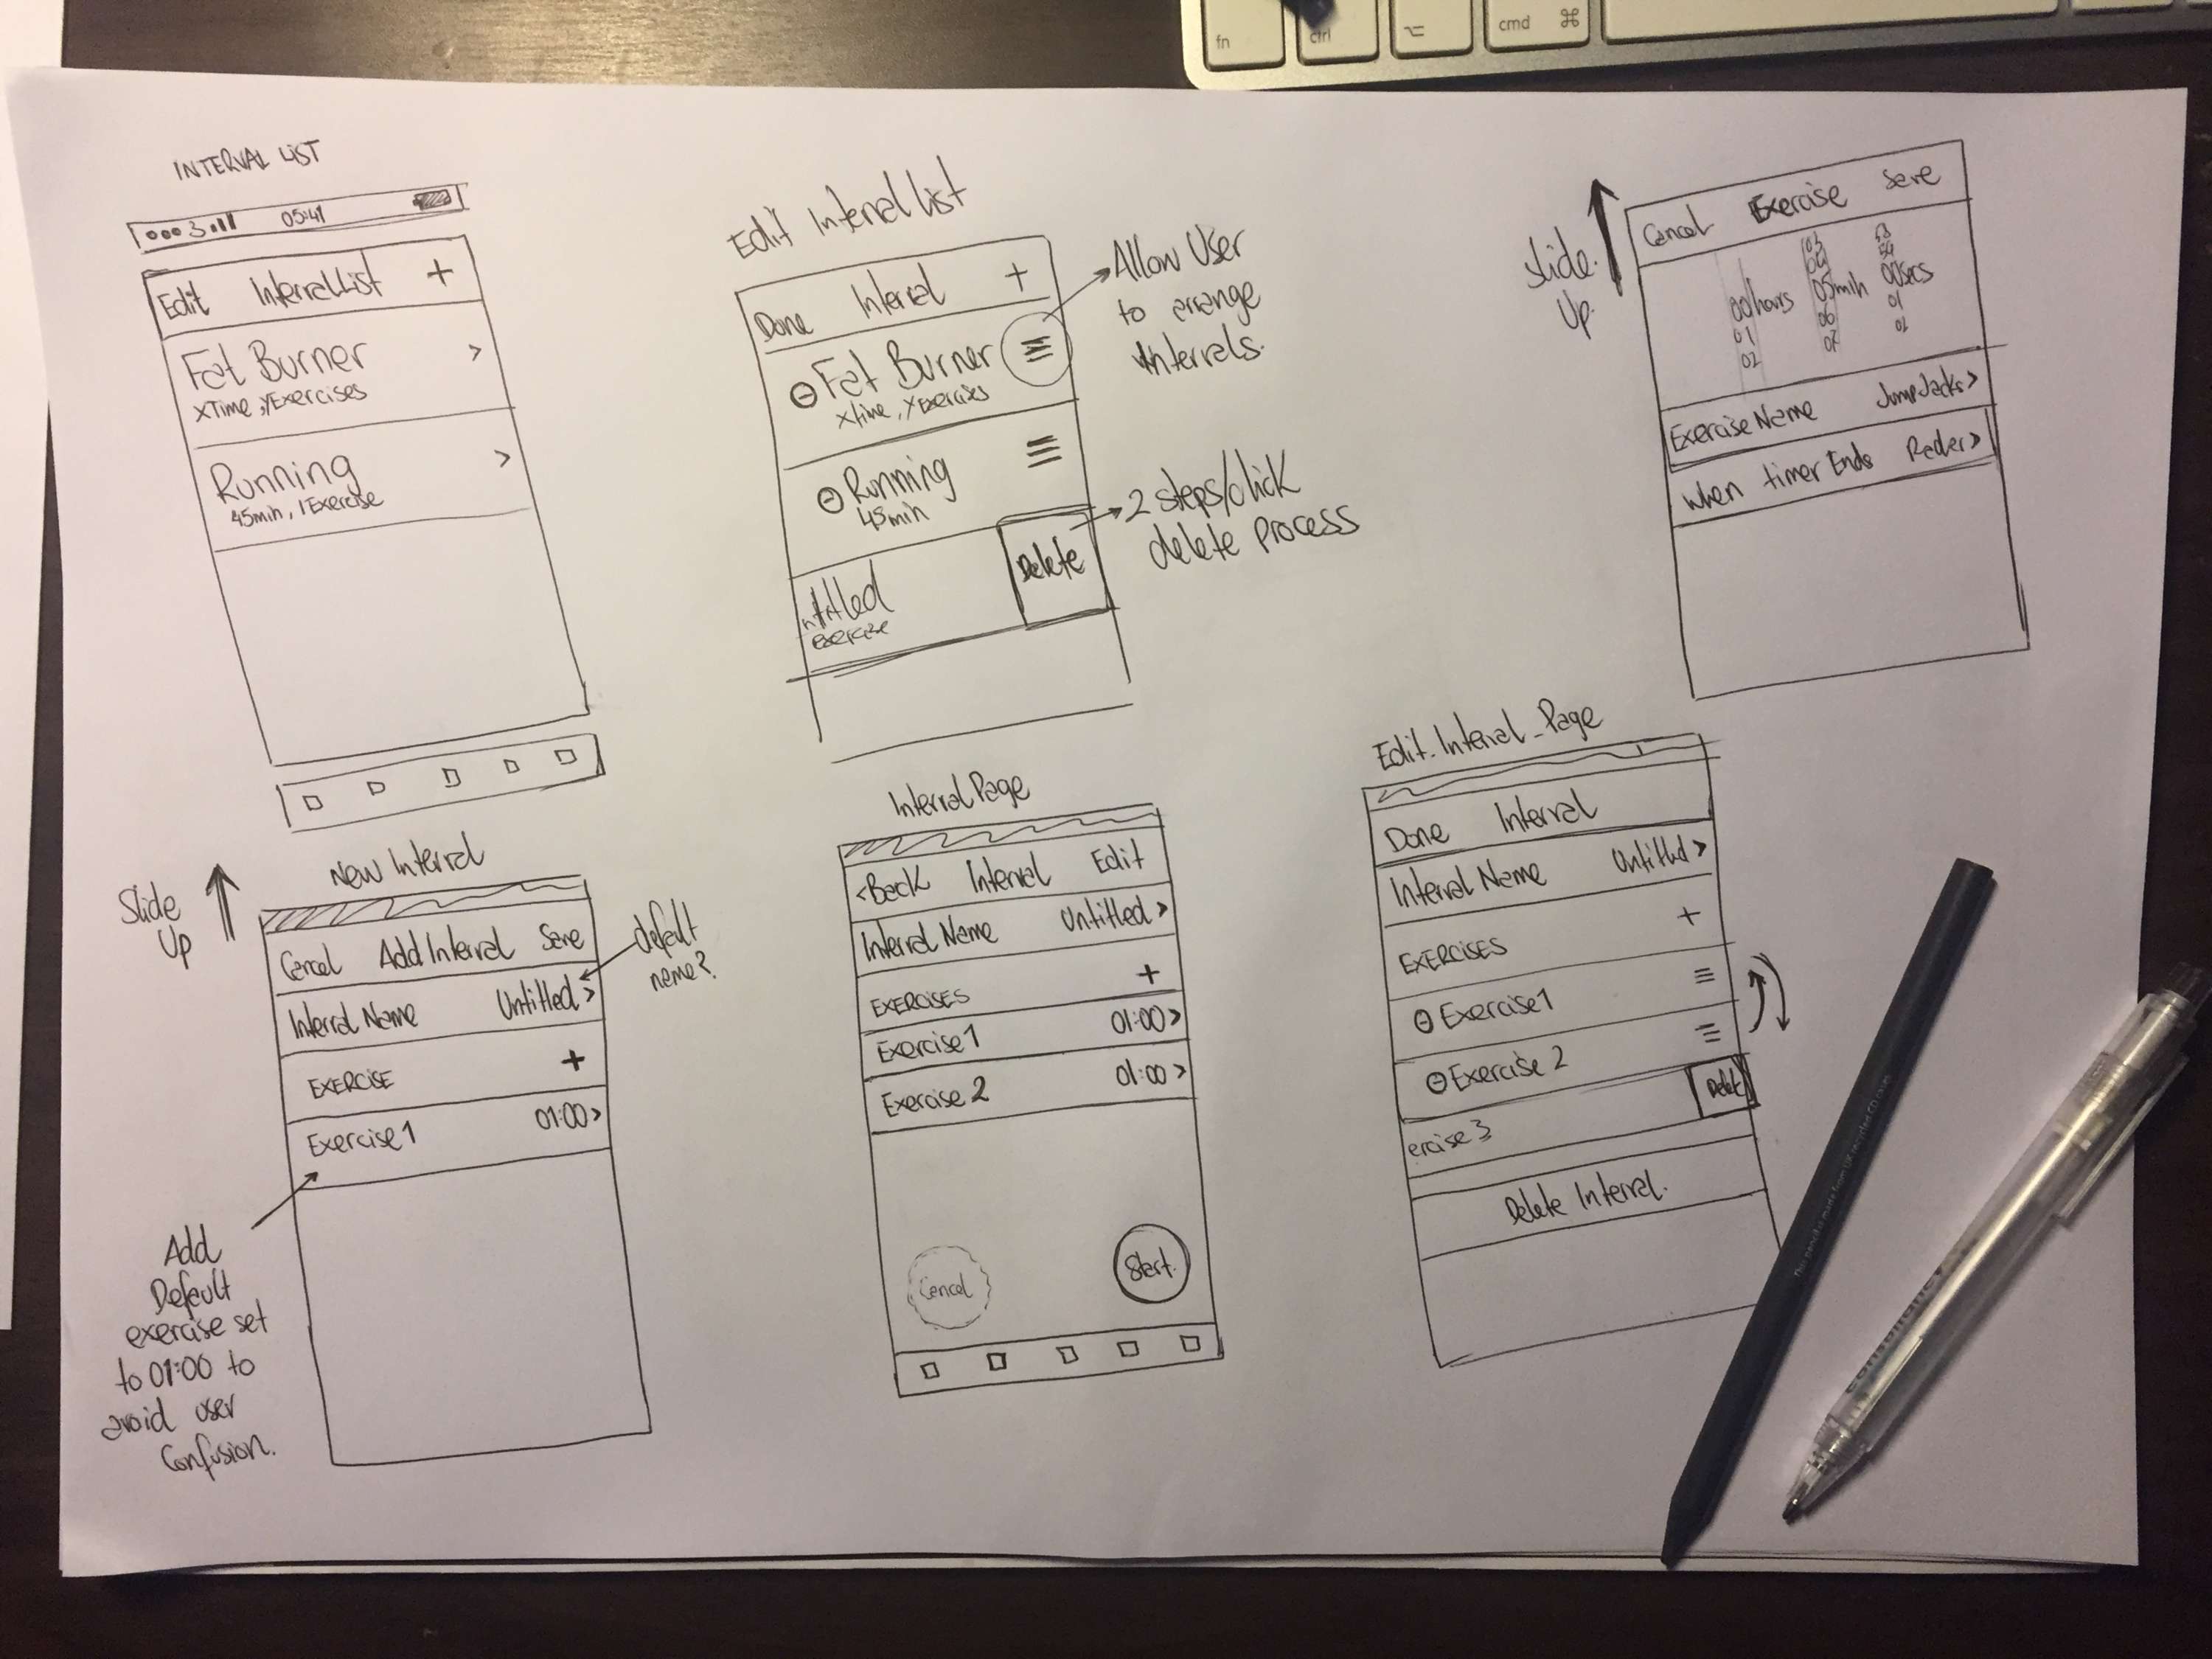 fn
ctrl
⌥
cmd ⌘
INTERVAL LIST
3 05:41
Edit Interval List +
Fat Burner >
xTime, yExercises
Running >
45min, 1Exercise
Edit Interval List
Done Interval +
Fat Burner
xTime, yExercises
Running
45min
ntitled
exercise
Delete
Allow User
to arrange
Intervals.
2 steps/click
delete process
Slide
Up
Cancel Exercise Save
03 58
04 59
00 hours 05 min 00 secs
01 06 01
02 07 02
Exercise Name JumpJacks >
When timer Ends Radar >
Slide
Up
New Interval
Cancel Add Interval Save
Interval Name Untitled >
EXERCISE +
Exercise1 01:00 >
default
name?
Add
Default
exercise set
to 01:00 to
avoid user
Confusion.
Interval Page
<Back Interval Edit
Interval Name Untitled >
EXERCISES +
Exercise1 01:00 >
Exercise 2 01:00 >
Cancel Start
Edit_Interval_Page
Done Interval
Interval Name Untitled >
EXERCISES +
Exercise1
Exercise 2
ercise 3 Delete
Delete Interval.